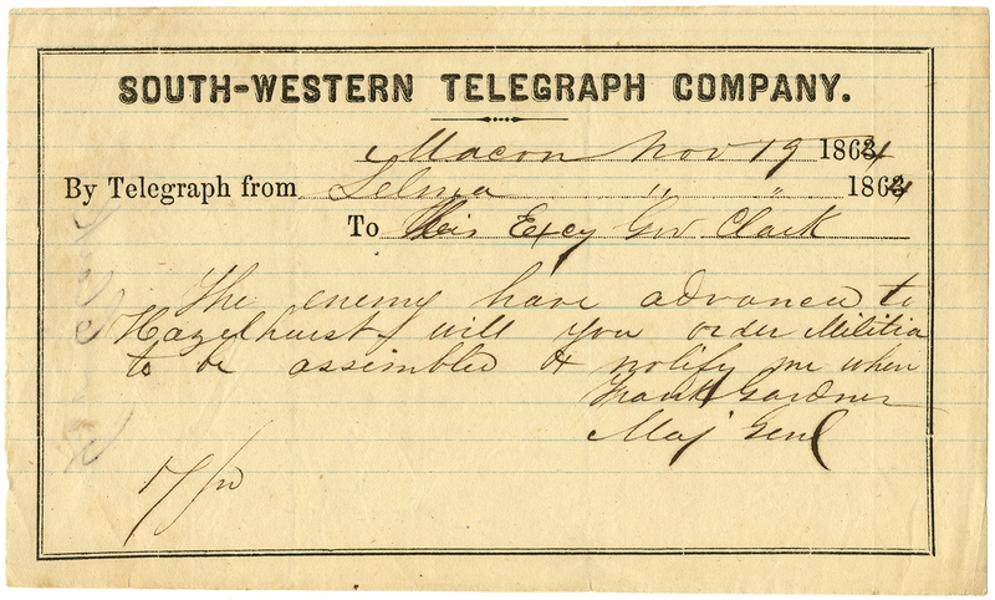 SOUTH-WESTERN TELEGRAPH COMPANY.
Macon Nov 19 1864
By Telegraph from Selma " " 1864
To His Excy Gov Clark
The enemy have advanced to
Hazelhurst, will you order Militia
to be assembled & notify me when
Frank Gardner
Maj Genl